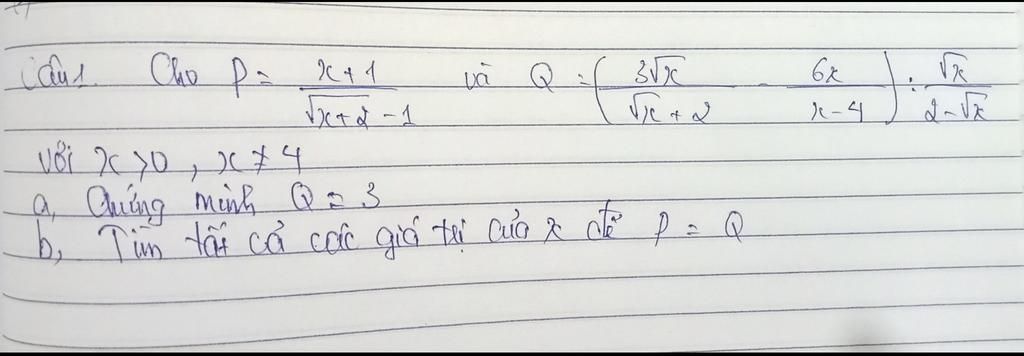 Câu 1. Cho P = (x+1)/(√(x+2) - 1) và Q = (3√x/(√x+2) - 6x/(x-4)) : √x/(2-√x)
với x > 0, x ≠ 4
a, Chứng minh Q = 3
b, Tìm tất cả các giá trị của x để P = Q